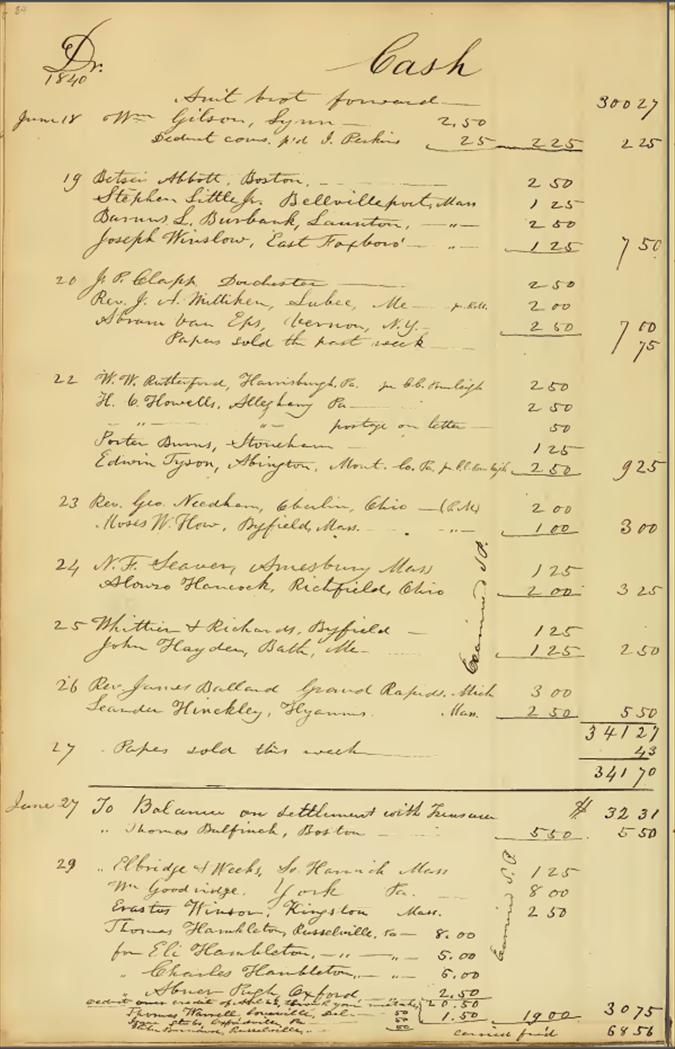 84
Dr. Cash
1840
Amt brot forward 300 27
June 18 Wm Gilson, Lynn 2.50
Deduct coms. p'd J. Perkins 25 2 25 2 25
19 Betsei Abbott, Boston, 2 50
Stephen Little Jr. Bellvilleport, Mass 1 25
Barnus L. Burbank, Taunton, " 2 50
Joseph Winslow, East Foxboro' " 1 25 7 50
20 J. P. Clapp Dorchester 2 50
Rev. J. A. Lubec, Me 2 00
Abram Van Eps, Vernon, N.Y. 2 50 7 00
Papers sold the past week 75
22 W. W. Rutherford, Harrisburgh, Pa. pr C.C. Burleigh 2 50
H. C. Howells, Allegheny Pa 2 50
" " postage on letter 50
Porter Burns, Stoneham 1 25
Edwin Tyson, Abington, Mont. Co. Pa. pr C.C. Burleigh 2 50 9 25
23 Rev. Geo. Needham, Oberlin, Ohio 2 00
Moses W. How, Byfield, Mass. " 1 00 3 00
24 N. F. Seaver, Amesbury Mass 1 25
Alonzo Hancock, Richfield, Ohio 2 00 3 25
Examined S.P.
25 Whittier & Richards, Byfield 1 25
John Hayden, Bath, Me 1 25 2 50
26 Rev. James Ballard Grand Rapids, Mich 3 00
Leander Hinckley, Hyannis. Mass. 2 50 5 50
341 27
27 Papers sold this week 43
341 70
June 27 To Balance on settlement with Treasurer $ 32 31
" Thomas Bulfinch, Boston 5 50 5 50
29 " Elbridge G Weeks, So. Harwich Mass 1 25
Wm Goodridge. York Pa. 8 00
Erastus Winsor, Kingston Mass. 2 50
Examined S.P.
Thomas Hambleton, Russelville, Pa 8.00
for Eli Hambleton, " " 5.00
" Charles Hambleton, " 5.00
" Abner Pugh Oxford, " 2.50
Deduct over credit of 20.50
Thomas Worrell, Del 50 1.50 19 00 30 75
50
Russelville, " 50 carried for'd 68 56